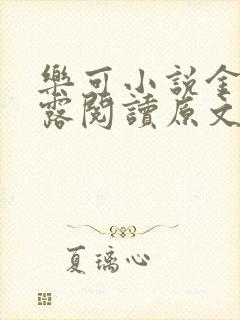 樂可小說金
露閱讀原文
夏璃心